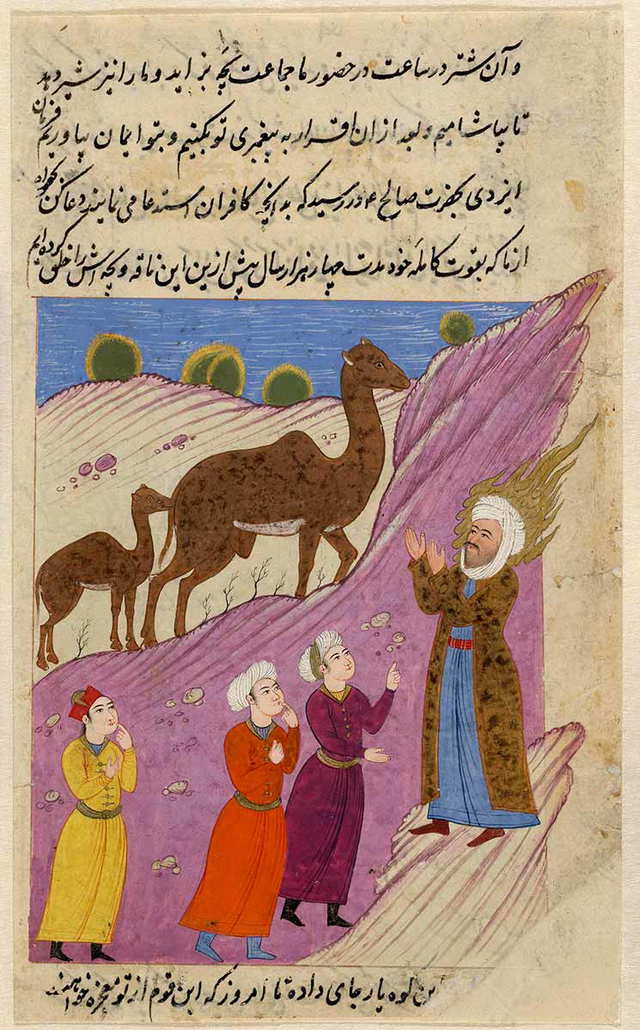 و آن شتر در ساعت در حضور ما جماعت بچه بزاید و ما را نیز شیر دهد
تا بیاشامیم و بعد از ان اقرار به پیغمبری تو بکنیم و بتو ایمان بیاوریم فرمان
ایزدی بحضرت صالح ع در رسید که به انچه کافران استدعا می نمایند دعا کن
از ما که بقوت کامله خود مدت چهار هزار سال پیش ازین این ناقه و بچه اش را خلق کرده ایم
این کوه پار جای داده تا امروز که این قوم از تو معجزه خواهند